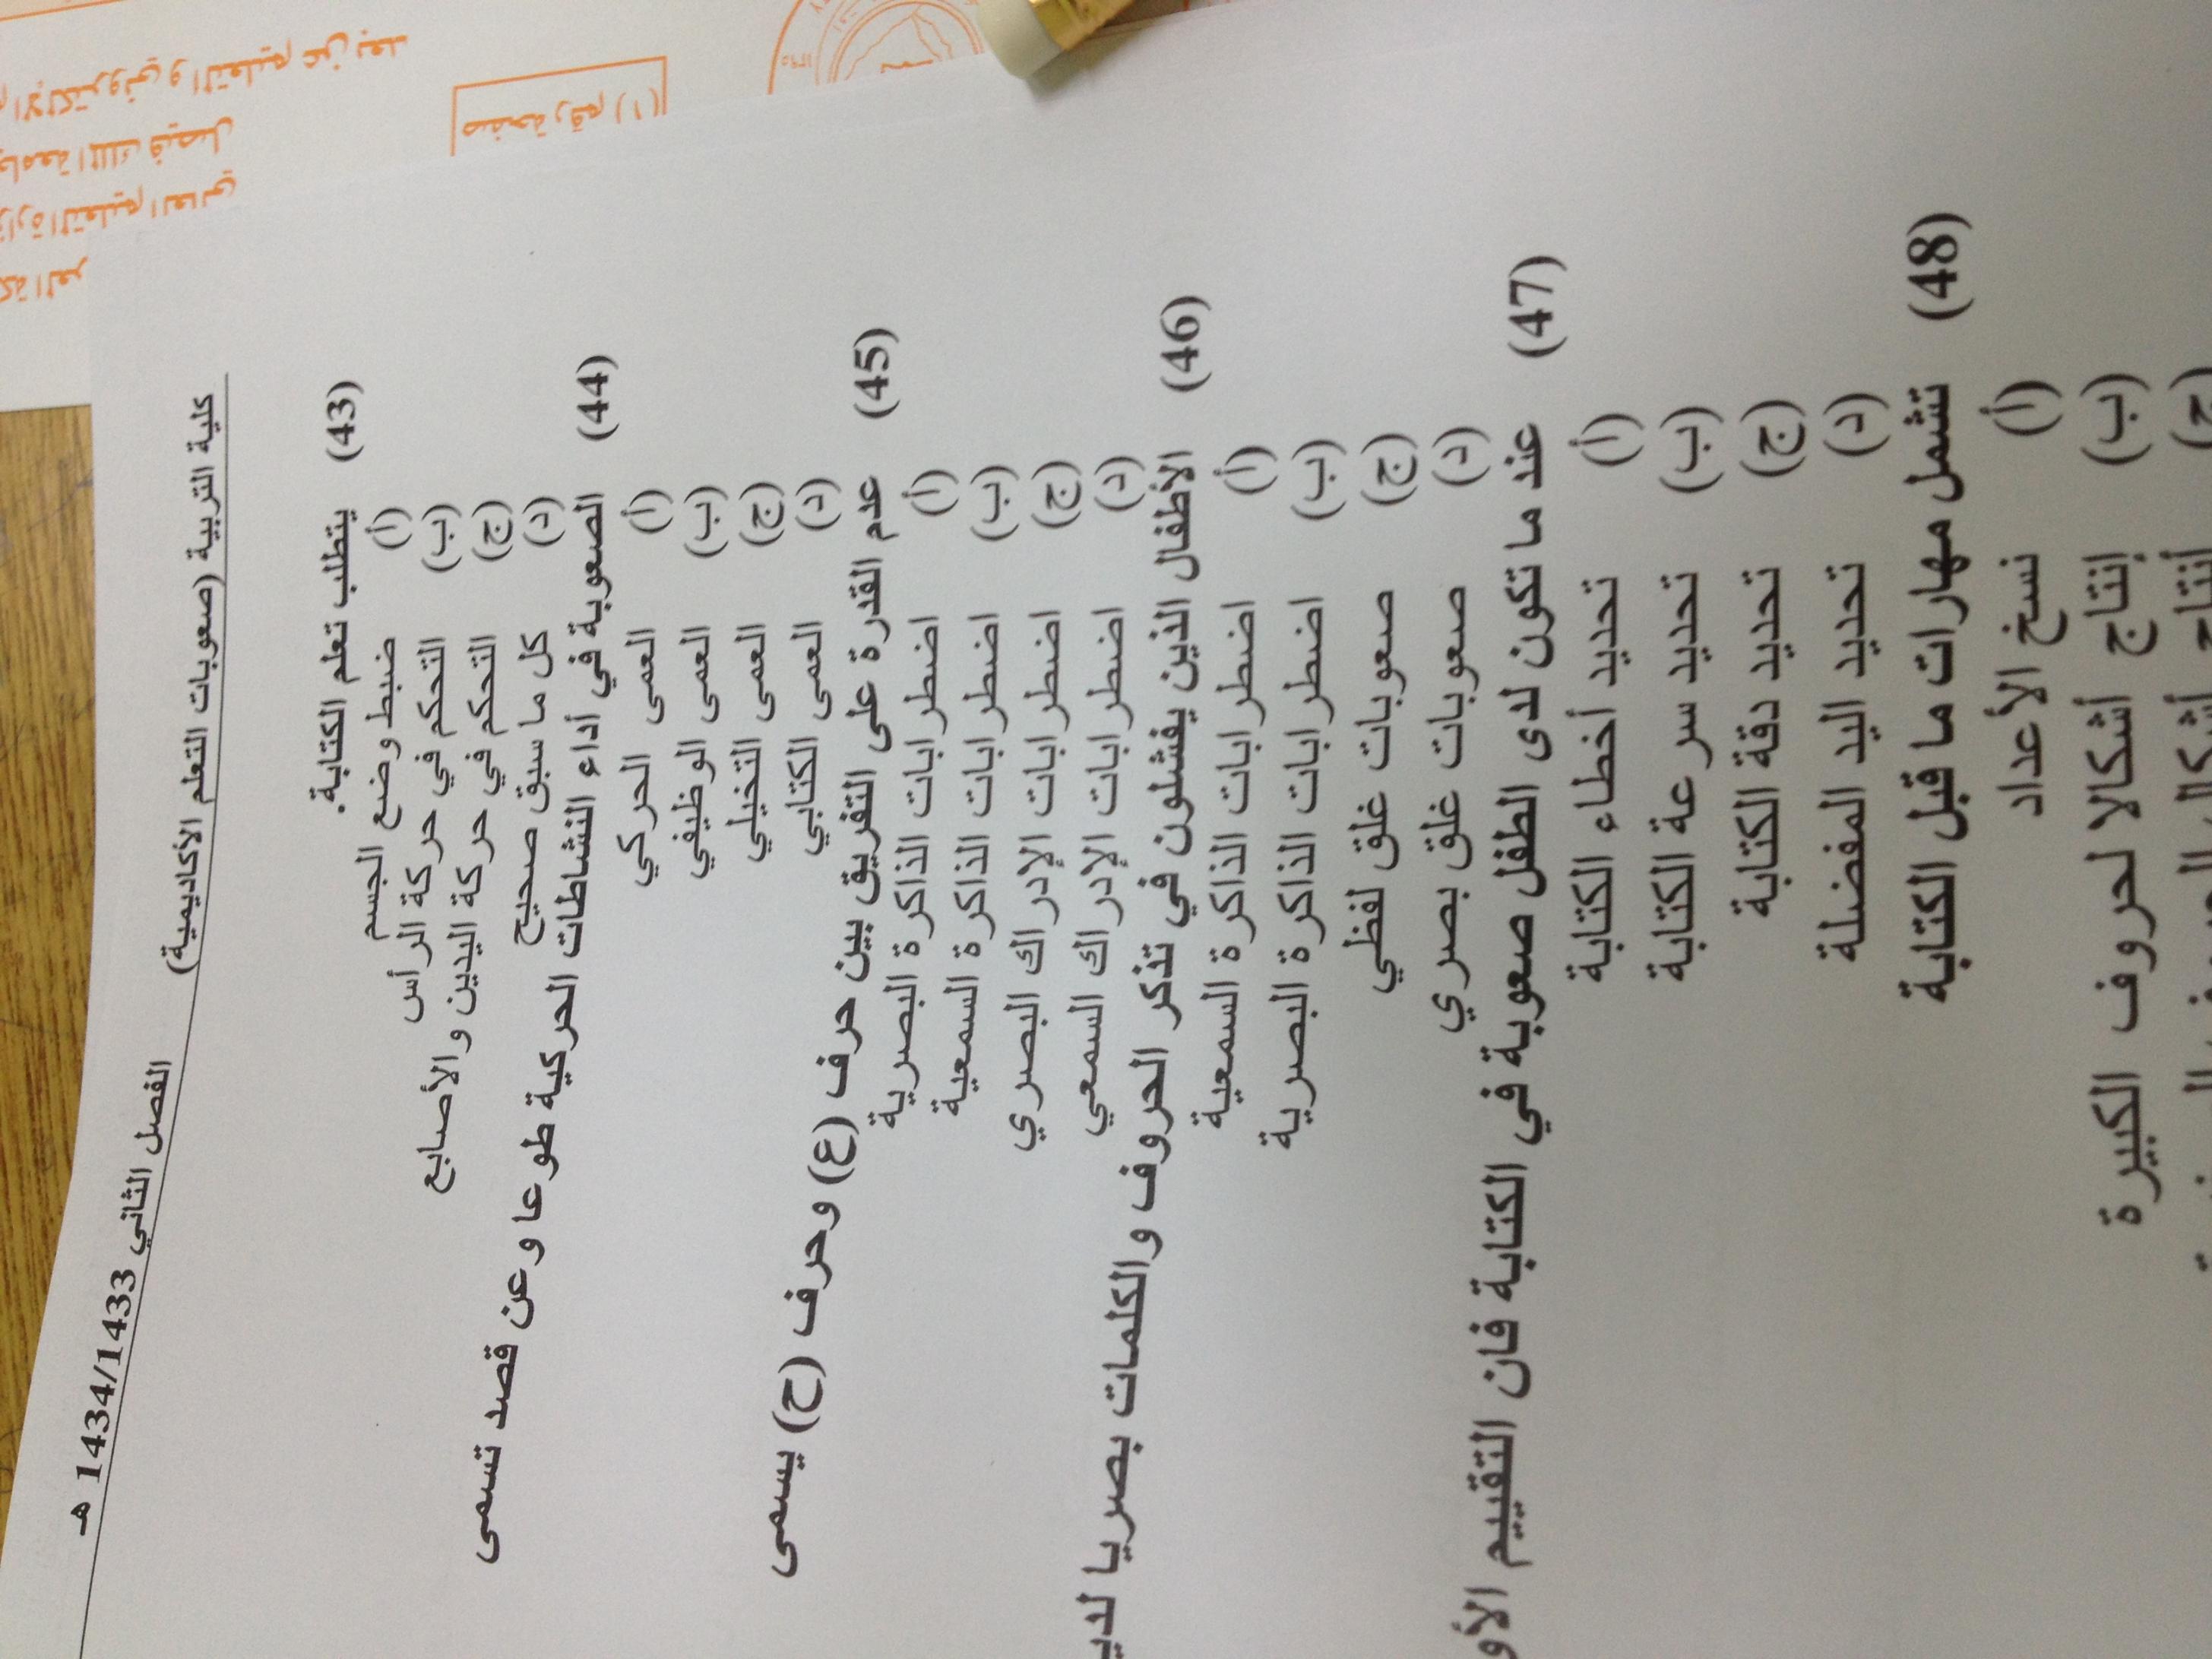 صفحة رقم (١)
التعليم العالي
جامعة الملك فيصل
الإلكتروني و التعليم عن بعد
١٣٩٥
كلية التربية (صعوبات التعلم الأكاديمية) الفصل الثاني 1434/1433 هـ
(43) يتطلب تعلم الكتابة.
(أ) ضبط وضع الجسم
(ب) التحكم في حركة الرأس
(ج) التحكم في حركة اليدين والأصابع
(د) كل ما سبق صحيح
(44) الصعوبة في أداء النشاطات الحركية طوعا وعن قصد تسمى
(أ) العمى الحركي
(ب) العمى الوظيفي
(ج) العمى التخيلي
(د) العمى الكتابي
(45) عدم القدرة على التفريق بين حرف (ع) وحرف (ح) يسمى
(أ) اضطرابات الذاكرة البصرية
(ب) اضطرابات الذاكرة السمعية
(ج) اضطرابات الإدراك البصري
(د) اضطرابات الإدراك السمعي
(46) الأطفال الذين يفشلون في تذكر الحروف والكلمات بصريا
(أ) اضطرابات الذاكرة السمعية
(ب) اضطرابات الذاكرة البصرية
(ج) صعوبات غلق لفظي
(د) صعوبات غلق بصري
(47) عند ما تكون لدى الطفل صعوبة في الكتابة فان التقييم
(أ) تحديد أخطاء الكتابة
(ب) تحديد سرعة الكتابة
(ج) تحديد دقة الكتابة
(د) تحديد اليد المفضلة
(48) تشمل مهارات ما قبل الكتابة
(أ) نسخ الأعداد
(ب) إنتاج أشكالا لحروف الكبيرة
(ج)